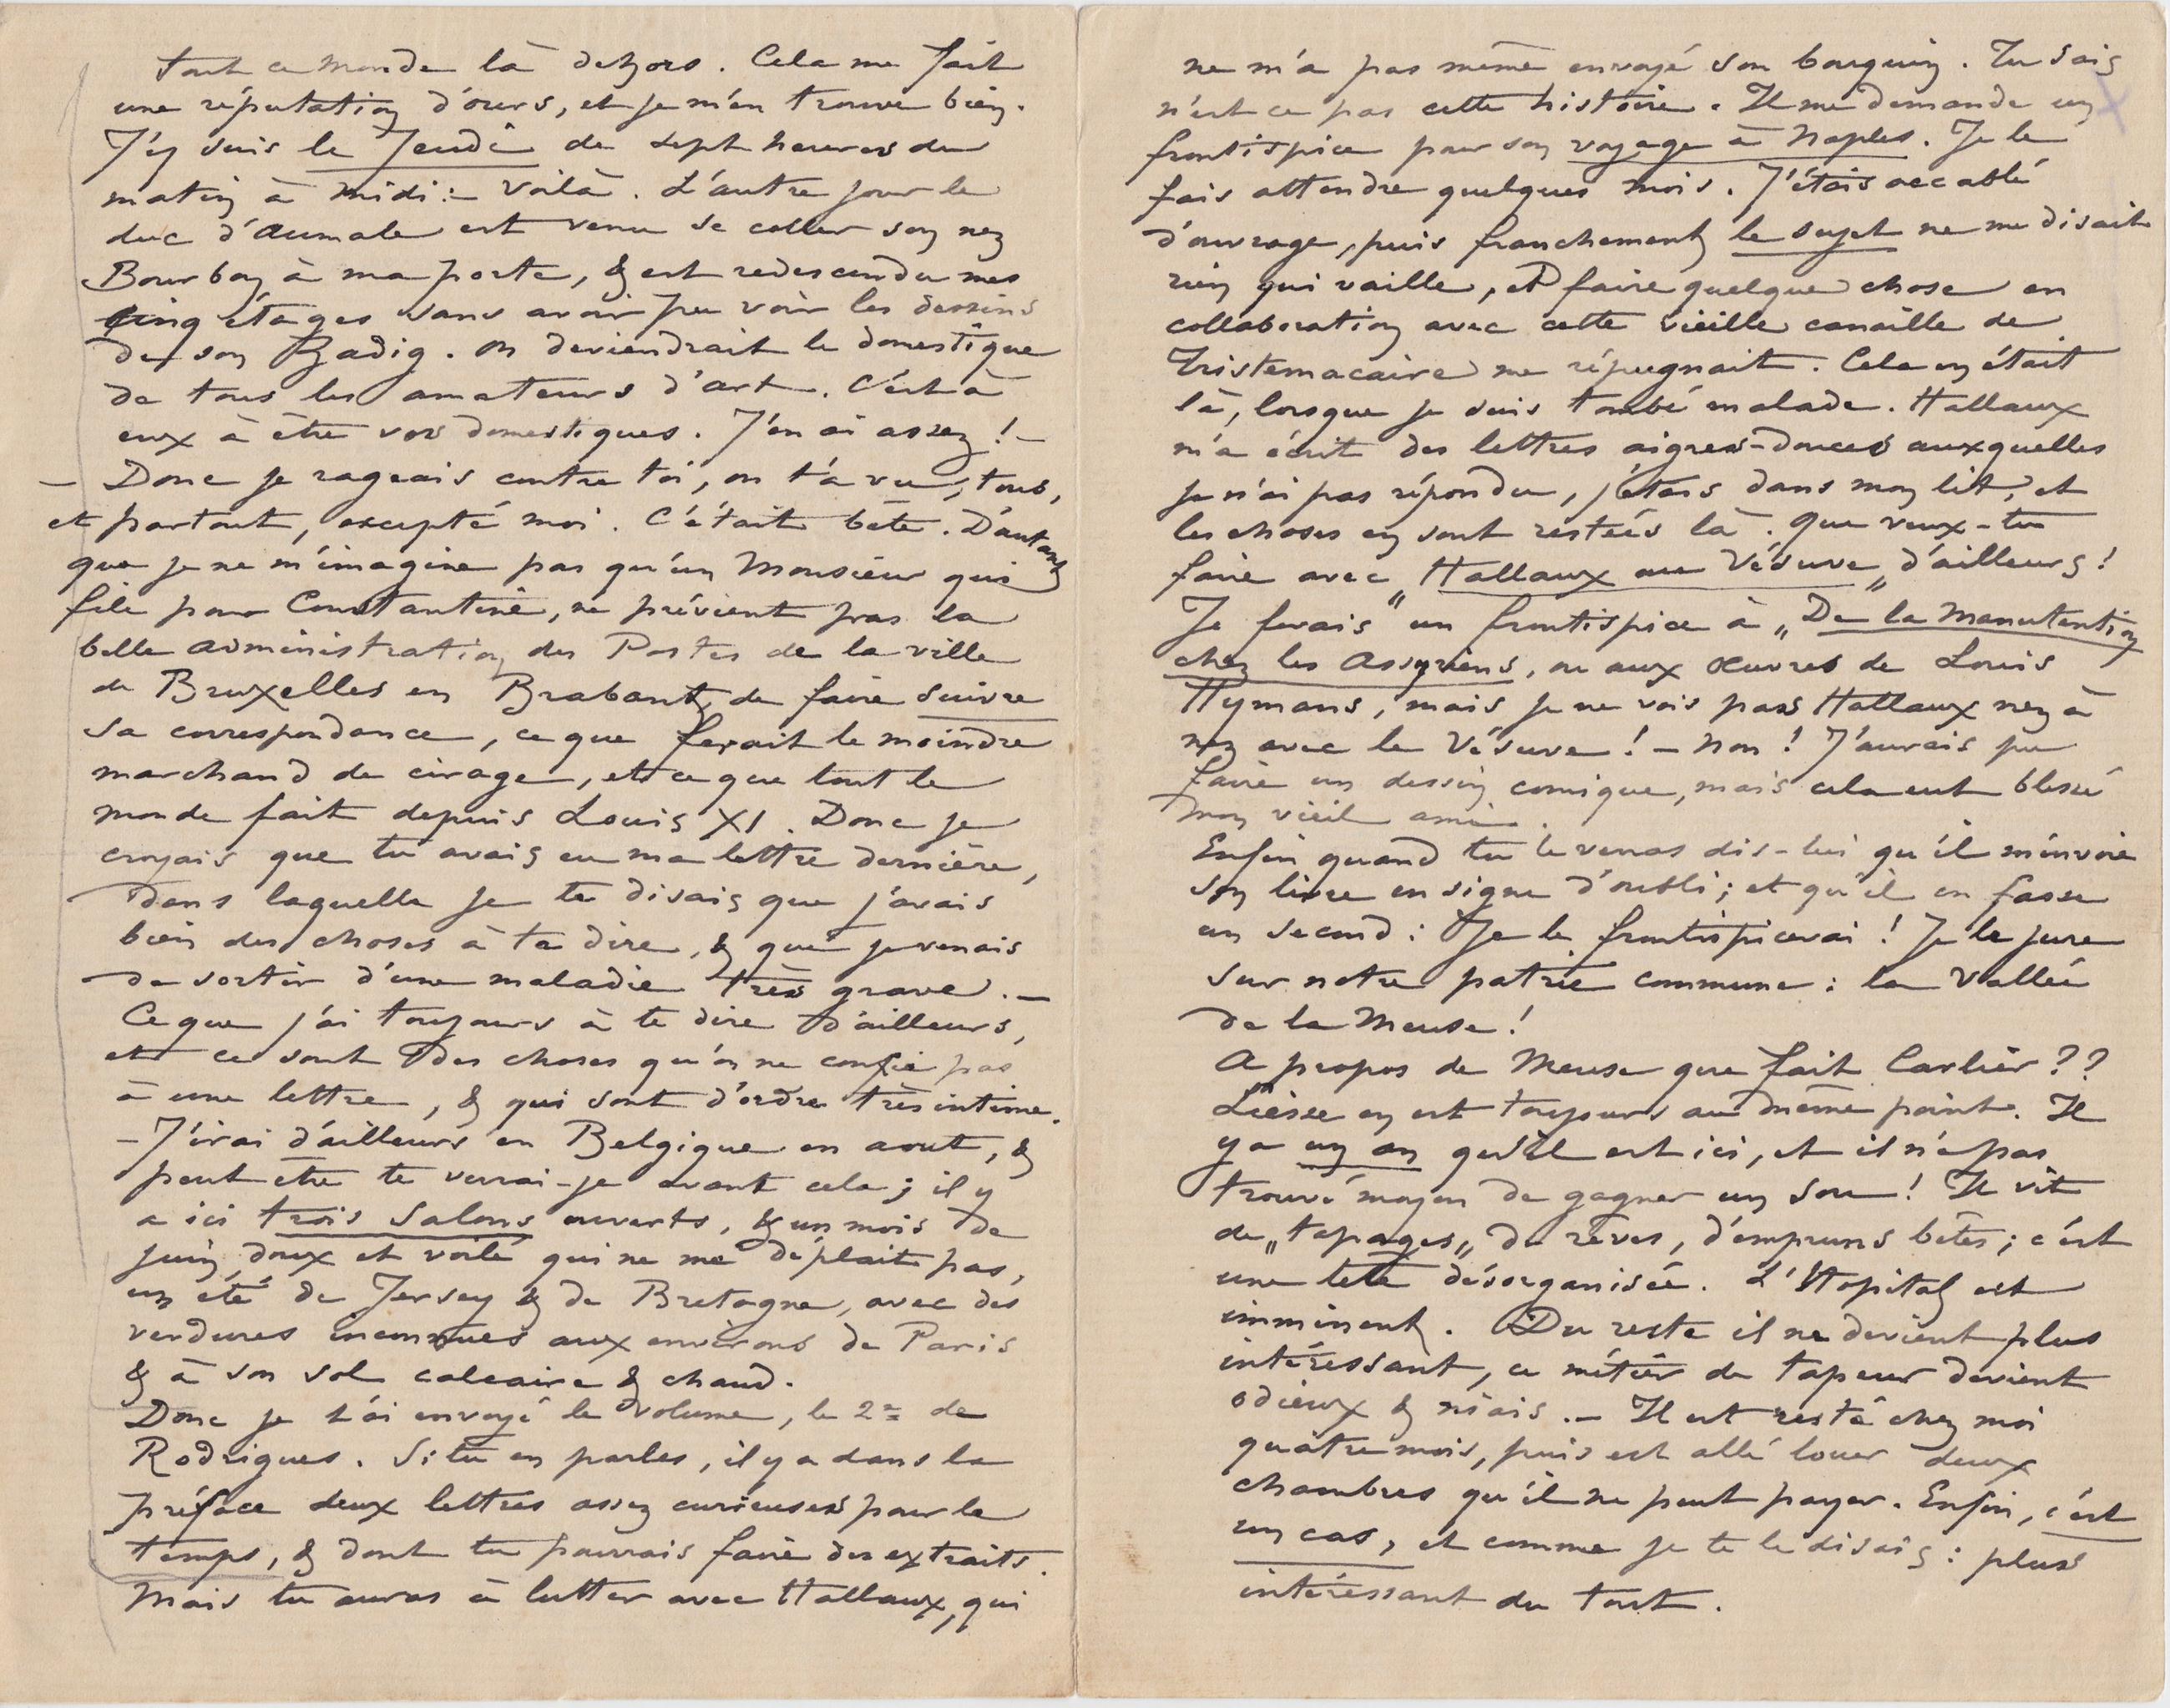 tout ce monde là dehors. Cela me fait
une réputation d'ours, et je m'en trouve bien.
J'y suis le Jeudi de sept heures du
matin à midi :– voilà. L'autre jour le
duc d'Aumale est venu se coller son nez
Bourbon à ma porte, & est redescendu mes
cinq étages sans avoir pu voir les dessins
de son Zadig. On deviendrait le domestique
de tous les amateurs d'art. C'est à
eux à être vos domestiques. J'en ai assez ! –
– Donc je rageais contre toi, on t'a vu, tous,
et partout, excepté moi. C'était bête. D'autant
que je ne m'imagine pas qu'un Monsieur qui
file pour Constantine, ne prévient pas la
belle administration des Postes de la ville
de Bruxelles en Brabant, de faire suivre
sa correspondance, ce que ferait le moindre
marchand de cirage, et ce que tout le
monde fait depuis Louis XI. Donc je
croyais que tu avais eu ma lettre dernière,
dans laquelle je te disais que j'avais
bien des choses à te dire, & que je venais
de sortir d'une maladie très grave. –
Ce que j'ai toujours à te dire d'ailleurs,
et ce sont des choses qu'on ne confie pas
à une lettre, & qui sont d'ordre très intime.
– J'irai d'ailleurs en Belgique en aout, &
peut etre te verrai-je avant cela ; il y
a ici trois Salons ouverts, & un mois de
juin doux et voilé qui ne me déplait pas,
un été de Jersey & de Bretagne, avec des
verdures inconnues aux environs de Paris
& à son sol calcaire & chaud.
Donc je t'ai envoyé le volume, le 2e de
Rodrigues. Si tu en parles, il y a dans la
préface deux lettres assez curieuses pour le
temps, & dont tu pourrais faire des extraits.
Mais tu auras à lutter avec Hallaux, qui
ne m'a pas même envoyé son bouquin. Tu sais
n'est ce pas cette histoire. Il me demande un
frontispice pour son voyage à Naples. Je le
fais attendre quelques mois. J'étais accablé
d'ouvrage, puis franchement le sujet ne me disait
rien qui vaille, et faire quelque chose en
collaboration avec cette vieille canaille de
Tristemacaire me répugnait. Cela en était
là, lorsque je suis tombé malade. Hallaux
m'a écrit des lettres aigres-douces auxquelles
je n'ai pas répondu, j'étais dans mon lit, et
les choses en sont restées là. Que veux-tu
faire avec „Hallaux au Vésuve„ d'ailleurs !
Je ferais un frontispice à „De la Manutention
chez les Assyriens, ou aux œuvres de Louis
Hymans, mais je ne vois pas Hallaux nez à
nez avec le Vésuve ! – Non ! J'aurais pu
faire un dessin comique, mais cela eut blessé
mon vieil ami.
Enfin quand tu le verras dis-lui qu'il m'envoie
son livre en signe d'oubli ; et qu'il en fasse
un second : Je le frontispicerai ! Je le jure
sur notre patrie commune : la Vallée
de la Meuse !
A propos de Meuse que fait Carlier ??
Liesse en est toujours au même point. Il
y a un an qu'il est ici, et il n'a pas
trouvé moyen de gagner un sou ! Il vit
de „tapages„ de rêves, d'empruns bêtes ; c'est
une tête désorganisée. L'Hopital est
imminent. Du reste il ne devient plus
intéressant, ce métier de tapeur devient
odieux & niais. – Il est resté chez moi
quatre mois, puis est allé louer deux
chambres qu'il ne peut payer. Enfin, c'est
un cas, et comme je te le disais : plus
intéressant du tout.